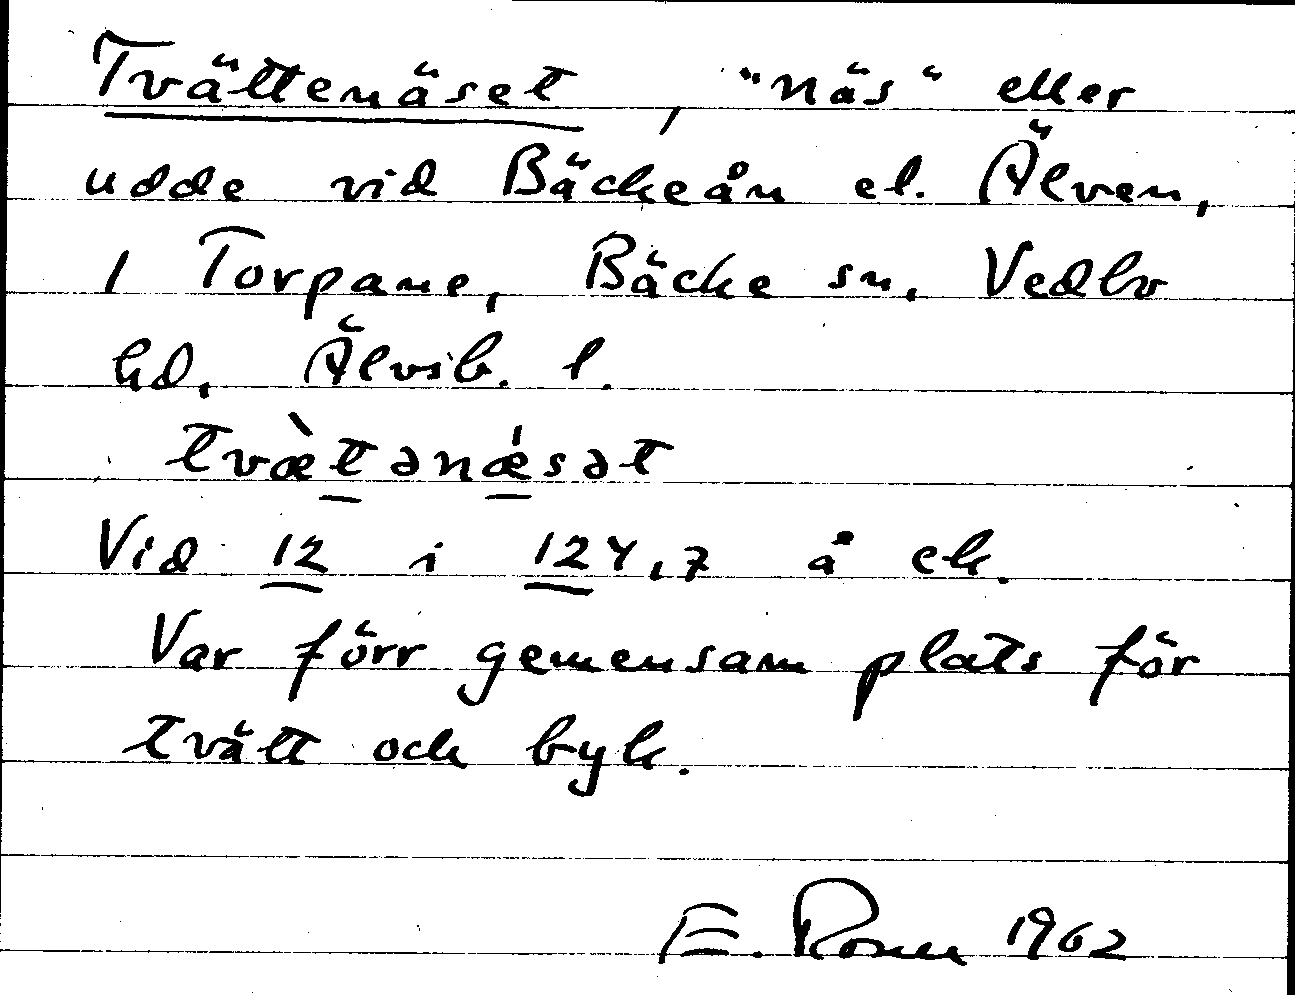 Tvättenäset, "näs" eller
udde vid Bäckeån el. Älven,
i Torpane, Bäcke sn. Vedbo
hd. Älvsb. l.
tvæ̀tənǽsət
Vid 12 i 124,7 å ek.
Var förr gemensam plats för
tvätt och byk.
E. Rosell 1962